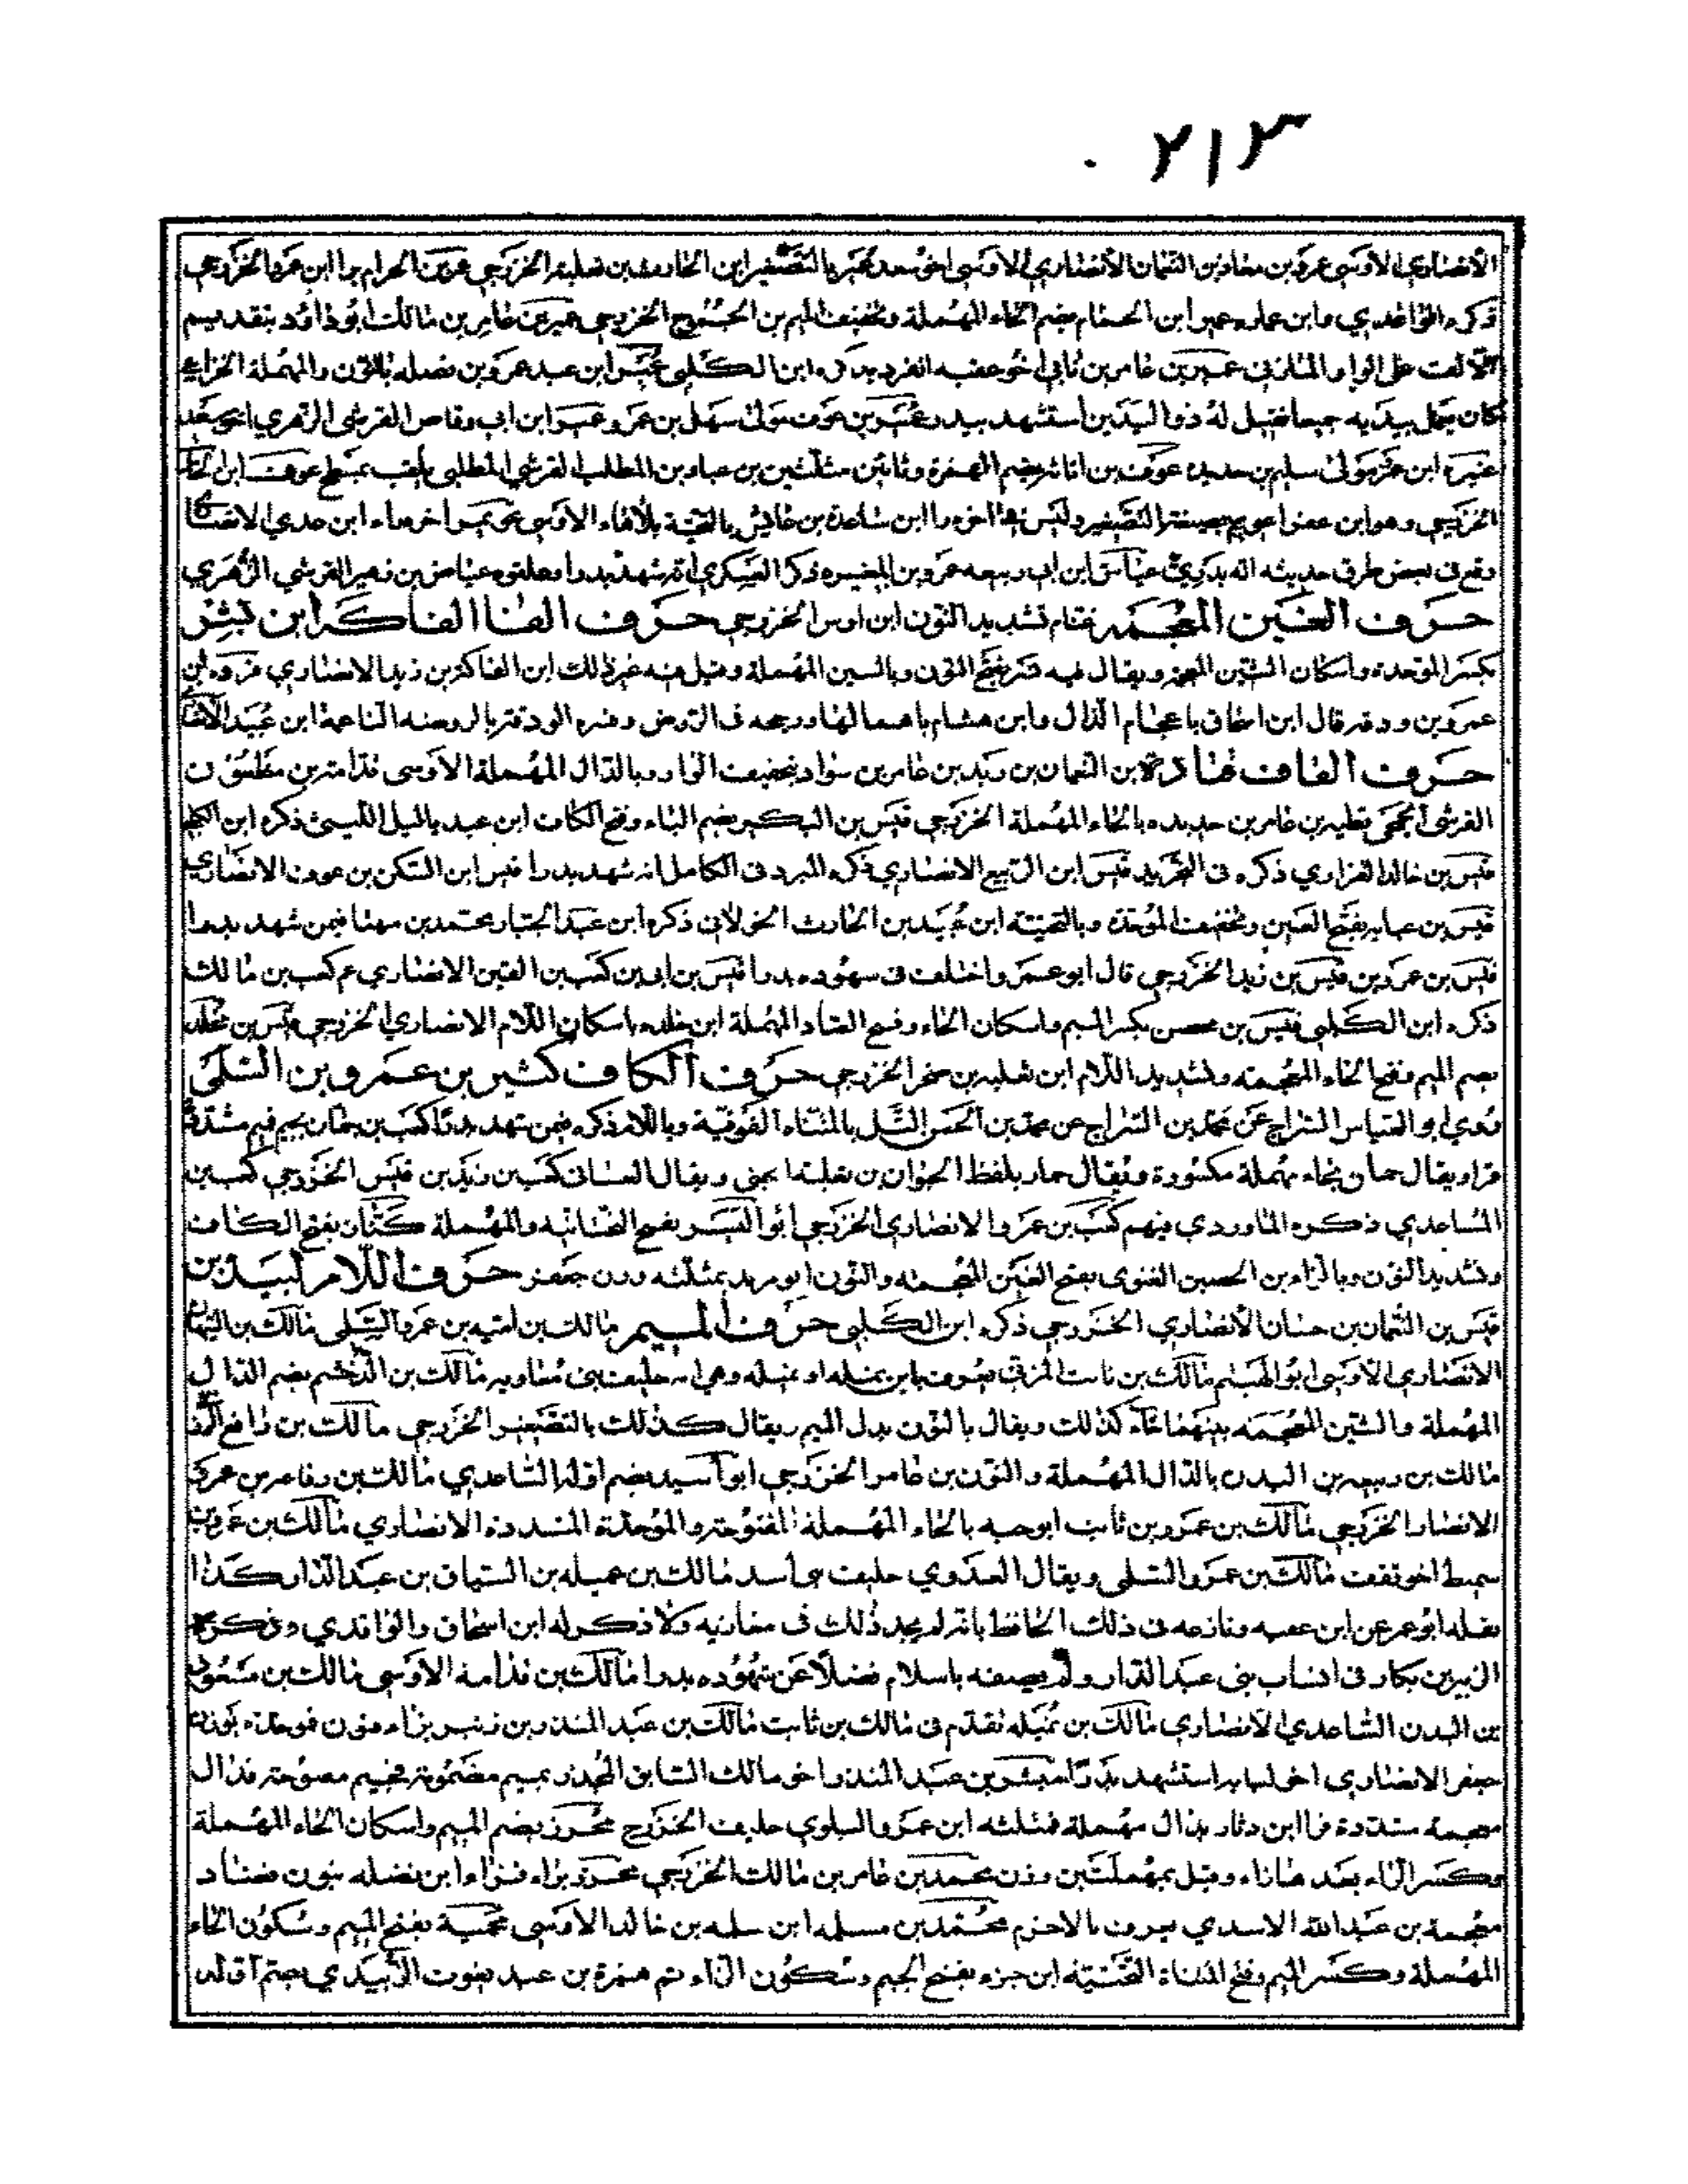 ٢١٣
الأنصاري الأوسي عمرو بن معاذ بن النعمان الأنصاري الأوسي اخو سعد عمير بالتصغير ابن الحارث بن ثعلبة الخزرجي عمير بن الحرام برا ابن عمرو الخزرجي
ذكره الواقدي وابن عمار وعمير ابن الحمام بضم الحاء المهملة وتخفيف الميم بن الجموح الخزرجي عمير بن عامر بن مالك ابو داود بتقديم
الالف على الواو المازني عمير بن عامر بن نابي اخو عقبه انفرد بذكره ابن الكلبي عمير ابن عبد عمرو بن نضله بالنون والمهملة الخزاعي
كان يعمل بيديه جميعا فقيل له ذو اليدين استشهد ببدر عمير بن عوف مولى سهل بن عمرو عمير ابن ابي وقاص القرشي الزهري اخو سعد
عنتره ابن عمرو مولى سليم بن حديده عوف بن اثاثه بضم الهمزة وثائين مثلثتين بن عباد بن المطلب القرشي المطلبي يلقب بمسطح عوف ابن
الخزرجي وهو ابن عفرا عويم بصيغة التصغير وليس هذا اخره را ابن ساعدة بن عايش بالتحتية بلا هاء الاوسي
وقع في بعض طرق حديثه انه بدري عياش ابن ابي ربيعه عمرو بن المغيره ذكر العسكري انه شهد بدرا وغلطوه عياض بن زهير القرشي الزهري
حرف الغين المعجمه غنام بتشديد النون ابن اوس الخزرجي حرف الفا الفاكه ابن بشر
بكسر الموحدة واسكان الشين المعجمه ويقال فيه نسر بفتح النون وبالسين المهملة وقيل فيه غير ذلك ابن الفاكه بن زيد الانصاري فروه بن
عمرو بن ودقه قال ابن اسحاق باعجام الذال وابن هشام باهمالها ورجحه في الروض وفسره الودقه بالروضه الناعمة ابن عبيد
حرف القاف قتادة بن النعمان بن زيد بن عامر بن سواد بتخفيف الواو وبالدال المهملة الاوسي قدامه بن مظعون
القرشي الجمحي قطبه بن عامر بن حديده بالحاء المهملة الخزرجي قيس بن البكير بضم الباء وفتح الكاف ابن عبد ياليل الليثي ذكره ابن الكلبي
قيس بن خالد الفزاري ذكره في التجريد قيس ابن الربيع الانصاري ذكره المبرد في الكامل انه شهد بدرا قيس ابن السكن بن عوف الانصاري
قيس بن عبايه بفتح العين وتخفيف الموحدة وبالتحتية ابن عبيد بن الحارث الخولاني ذكره ابن عبد الجبار محمد بن مهنا فيمن شهد بدرا
قيس بن عمرو بن قيس بن زيد الخزرجي قال ابو عمر واختلف في شهوده بدرا قيس بن ابي بن كعب بن القين الانصاري عم كعب بن مالك
ذكره ابن الكلبي قيس بن محصن بكسر الميم واسكان الحاء وفتح الصاد المهملة ابن خلده باسكان اللام الانصاري الخزرجي قيس بن مخلد
بضم الميم وفتح الخاء المعجمة وتشديد اللام ابن ثعلبه بن صخر الخزرجي حرف الكاف كثير بن عمرو بن السلمي
روي ابو العباس السراج عن محمد بن السراج عن محمد بن الحسن التل بالمثناه الفوقية وباللام ذكره فيمن شهد بدرا كعب بن جماز بجيم فميم مشددة
فزا ويقال حمان بحاء مهملة مكسورة ويقال حمار بلفظ الحيوان بن ثعلبة الجهني ويقال الغساني كعب بن زيد بن قيس الخزرجي كعب بن
الساعدي ذكره الماوردي فيهم كعب بن عمرو الانصاري الخزرجي ابو اليسر بفتح التحتانيه والمهملة كناز بفتح الكاف
وتشديد النون وبالزاء بن الحصين الغنوي بفتح الغين المعجمة والنون ابو مرثد بمثلثه وزن جعفر حرف اللام لبيد بن
قيس بن النعمان بن سنان الأنصاري الخزرجي ذكره ابن الكلبي حرف الميم مالك بن اميه بن عمرو السلمي مالك بن التيهان
الانصاري الاوسي ابو الهيثم مالك بن ثابت المزني يعرف بابن نميله وهي امه حليف بني معاويه مالك بن الدخشم بضم الدال
المهملة والشين المعجمه بينهما خاء كذلك ويقال بالنون بدل الميم ويقال كذلك بالتصغير الخزرجي مالك بن رافع
مالك بن ربيعه بن البدن بالدال المهملة والنون بن عامر الخزرجي ابو اسيد بضم اوله الساعدي مالك بن رفاعه بن عمرو
الانصار الخزرجي مالك بن عمرو بن ثابت ابو حبه بالحاء المهملة المفتوحة والموحدة المشددة الانصاري مالك بن عمرو بن
سميط اخو ثقف مالك بن عمرو السلمي ويقال العدوي حليف بني اسد مالك بن عميله بن السباق بن عبد الدار كذا
نقله ابو عمر عن ابن عقبه ونازعه في ذلك الحافظ بانه لم يجد ذلك في مغازيه ولا ذكر له ابن اسحاق والواقدي وذكره
الزبير بن بكار في انساب بني عبد الدار ولم يصفه باسلام فضلا عن شهوده بدرا مالك بن قدامة الاوسي مالك بن مسعود
بن البدن الساعدي الانصاري مالك بن نميله تقدم في مالك بن ثابت مالك بن عبد المنذر بن زنبر بزاء فنون فموحدة بوزن
جعفر الانصاري اخو لبابه استشهد بدرا مبشر بن عبد المنذر اخو مالك السابق المجذر بميم مضمومة فجيم مفتوحة فذال
معجمة مشددة فرا ابن ذياد بذال مهملة فمثلثه ابن عمرو البلوي حليف الخزرج محرز بضم الميم واسكان الحاء المهملة
وكسر الراء بعدها زاء وقيل بمهملتين وزن محمد بن عامر بن مالك الخزرجي محرز براء فزاء ابن نضله بنون فضاد
معجمة بن عبد الله الاسدي يعرف بالاخرم محمد بن مسلمه ابن سلمه بن خالد الاوسي محمية بفتح الميم وسكون الحاء
المهملة وكسر الميم وفتح المثناة التحتية ابن جزء بفتح الجيم وسكون الزاء ثم همزة بن عبد يغوث الزبيدي بضم اوله